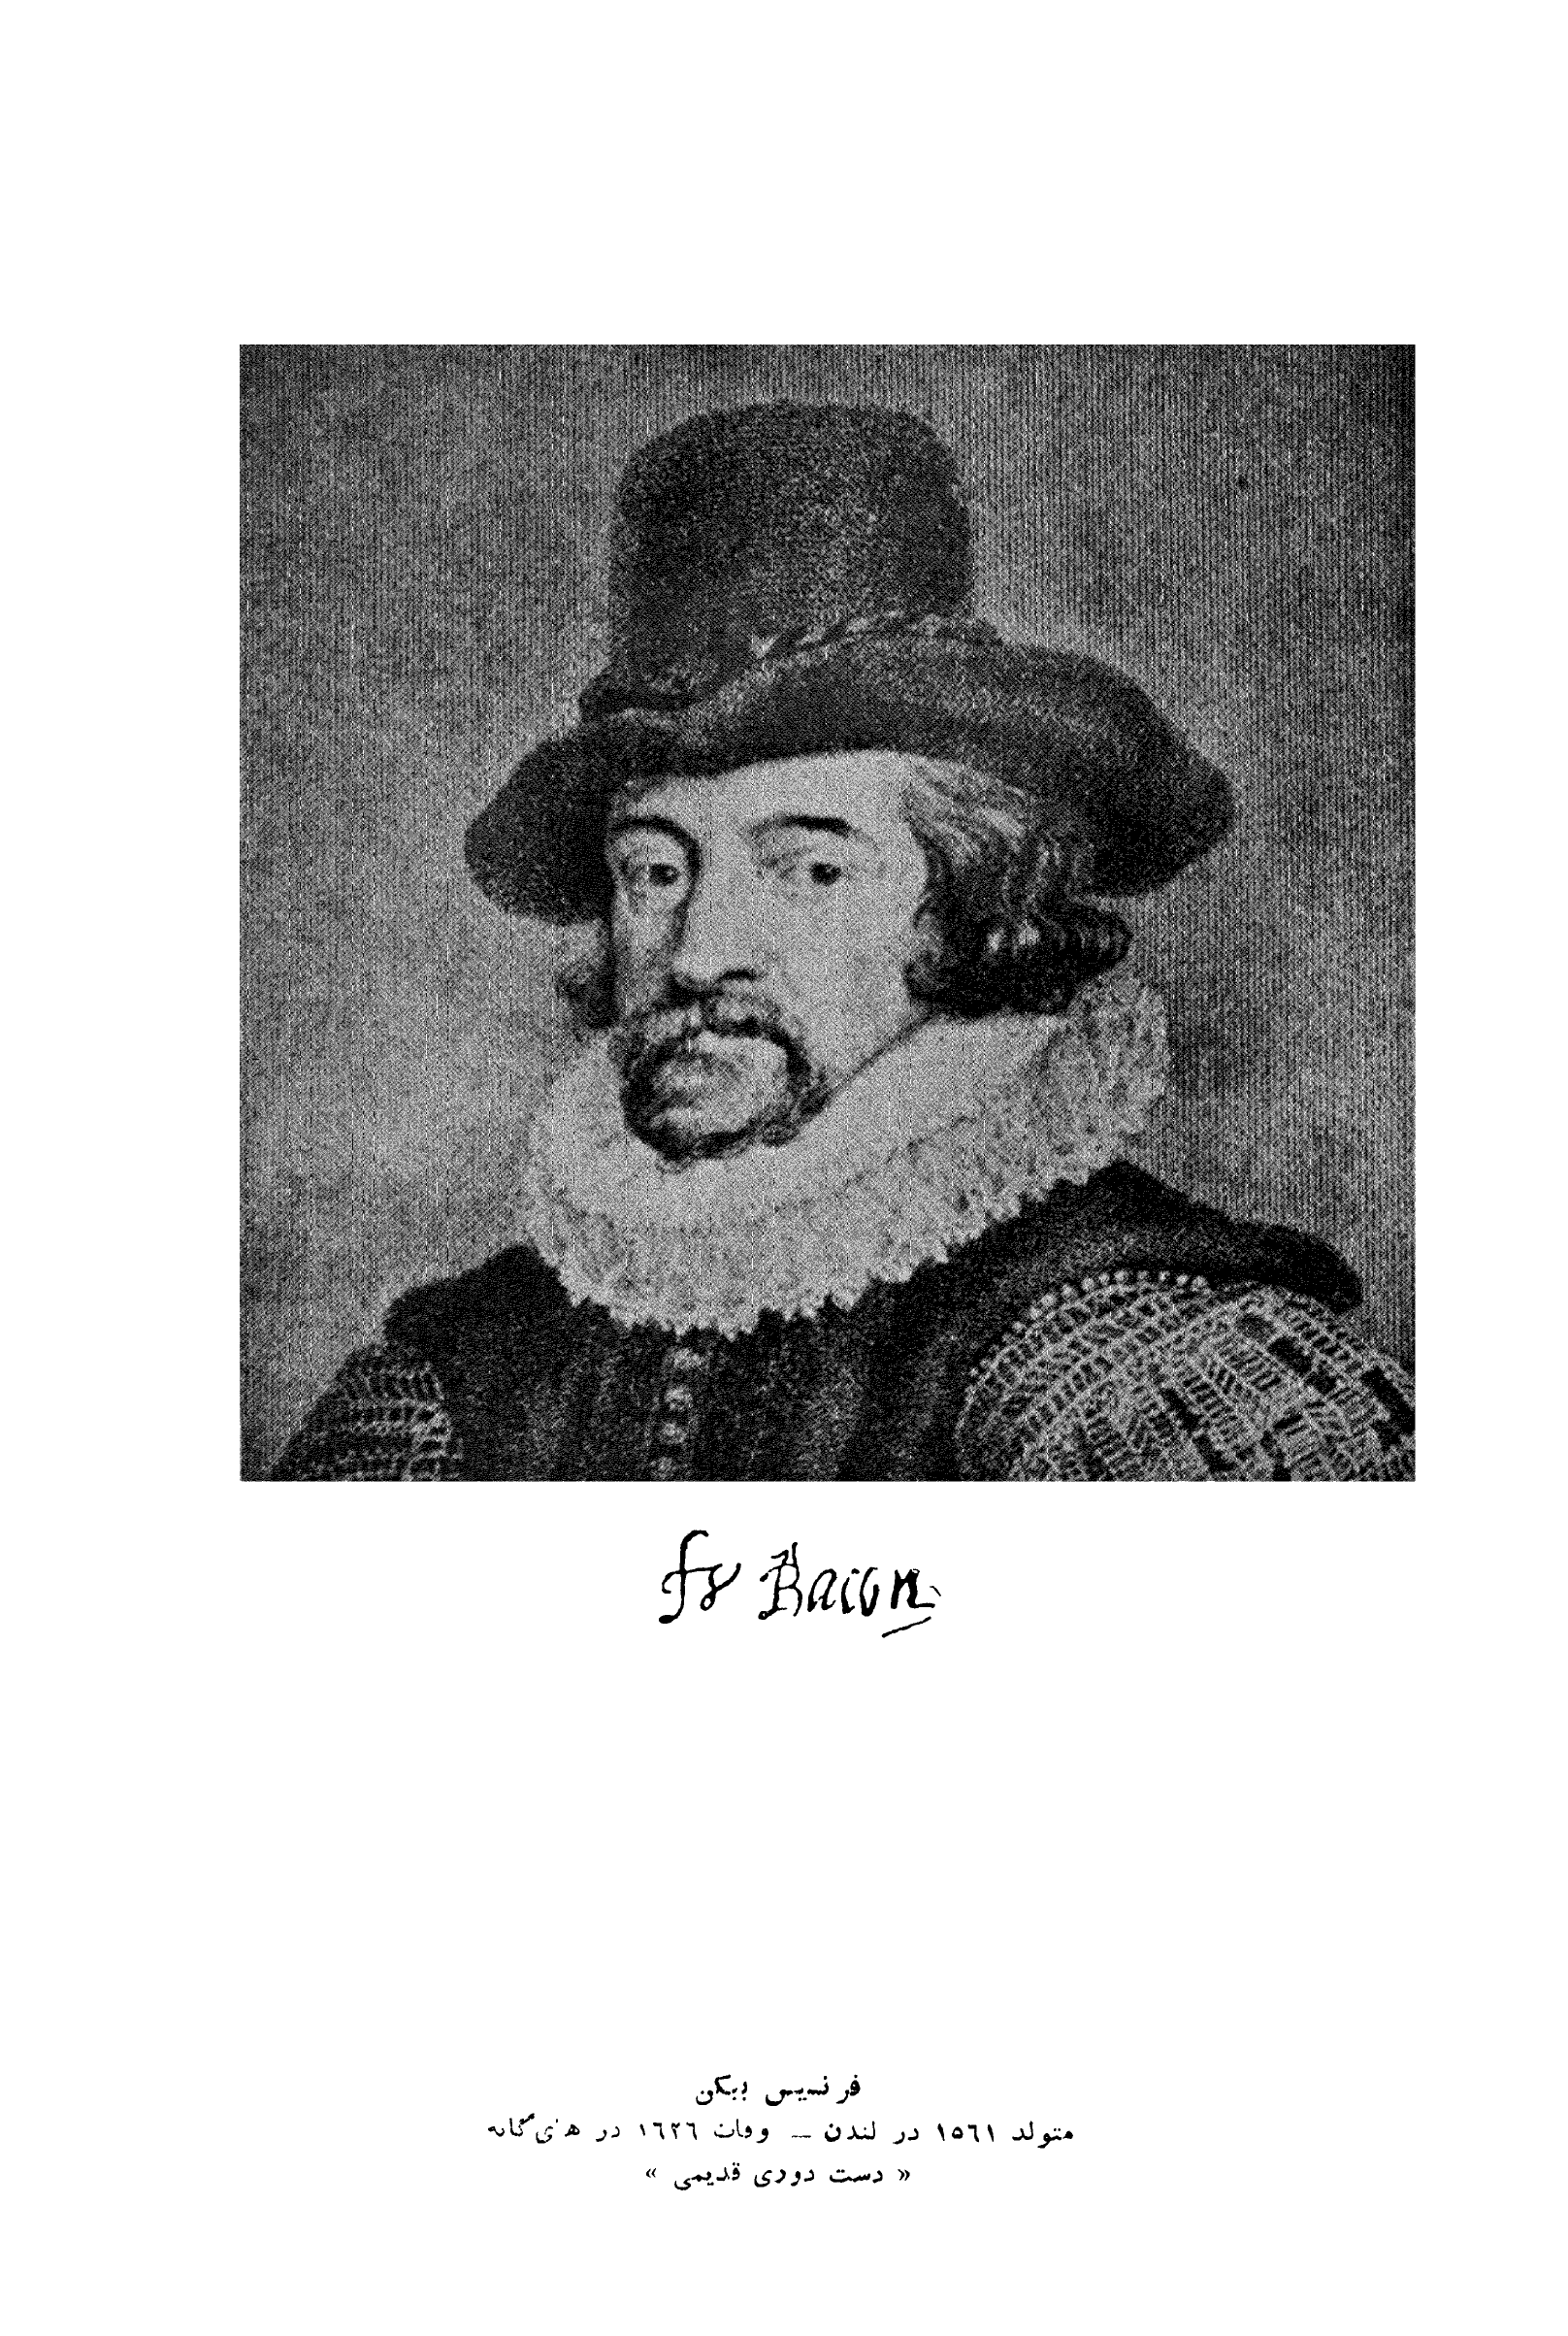 fr Bacon
فرنسیس بیکن
متولد ١٥٦١ در لندن — وفات ١٦٢٦ در های‌گانه
« دست دوری قدیمی »